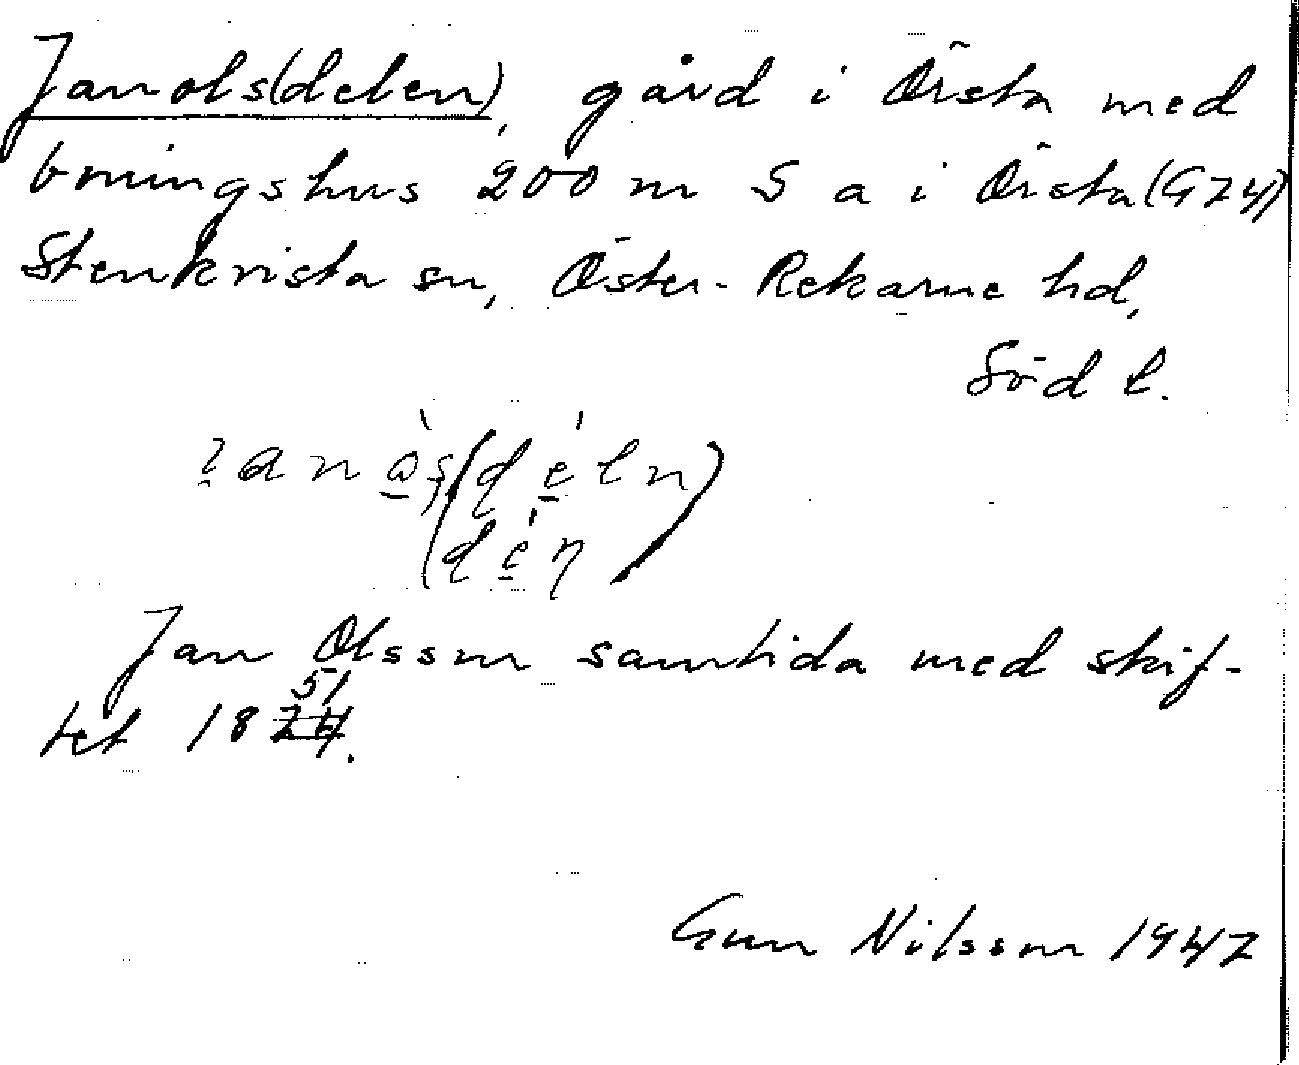 Janols(delen), gård i Örsta med
boningshus 200 m S a i Örsta (GZ4)
Stenkvista sn, Öster-Rekarne hd,
Södl.
Jan Olsson samtida med skif-
tet 1851.
Gun Nilsson 1947